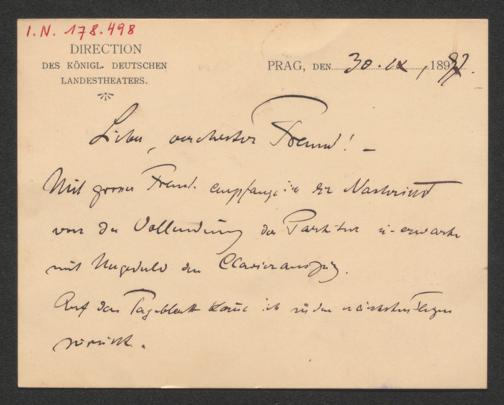 I.N. 178.498
DIRECTION
DES KÖNIGL. DEUTSCHEN
LANDESTHEATERS.
PRAG, DEN 30. IX, 1897.
Lieber, verehrter Freund! –
Mit grosser Freude empfange ich die Nachricht
von der Vollendung der Partitur u. erwarte
mit Ungeduld den Clavierauszug.
Auf das Tageblatt komme ich in den nächsten Tagen
zurück.